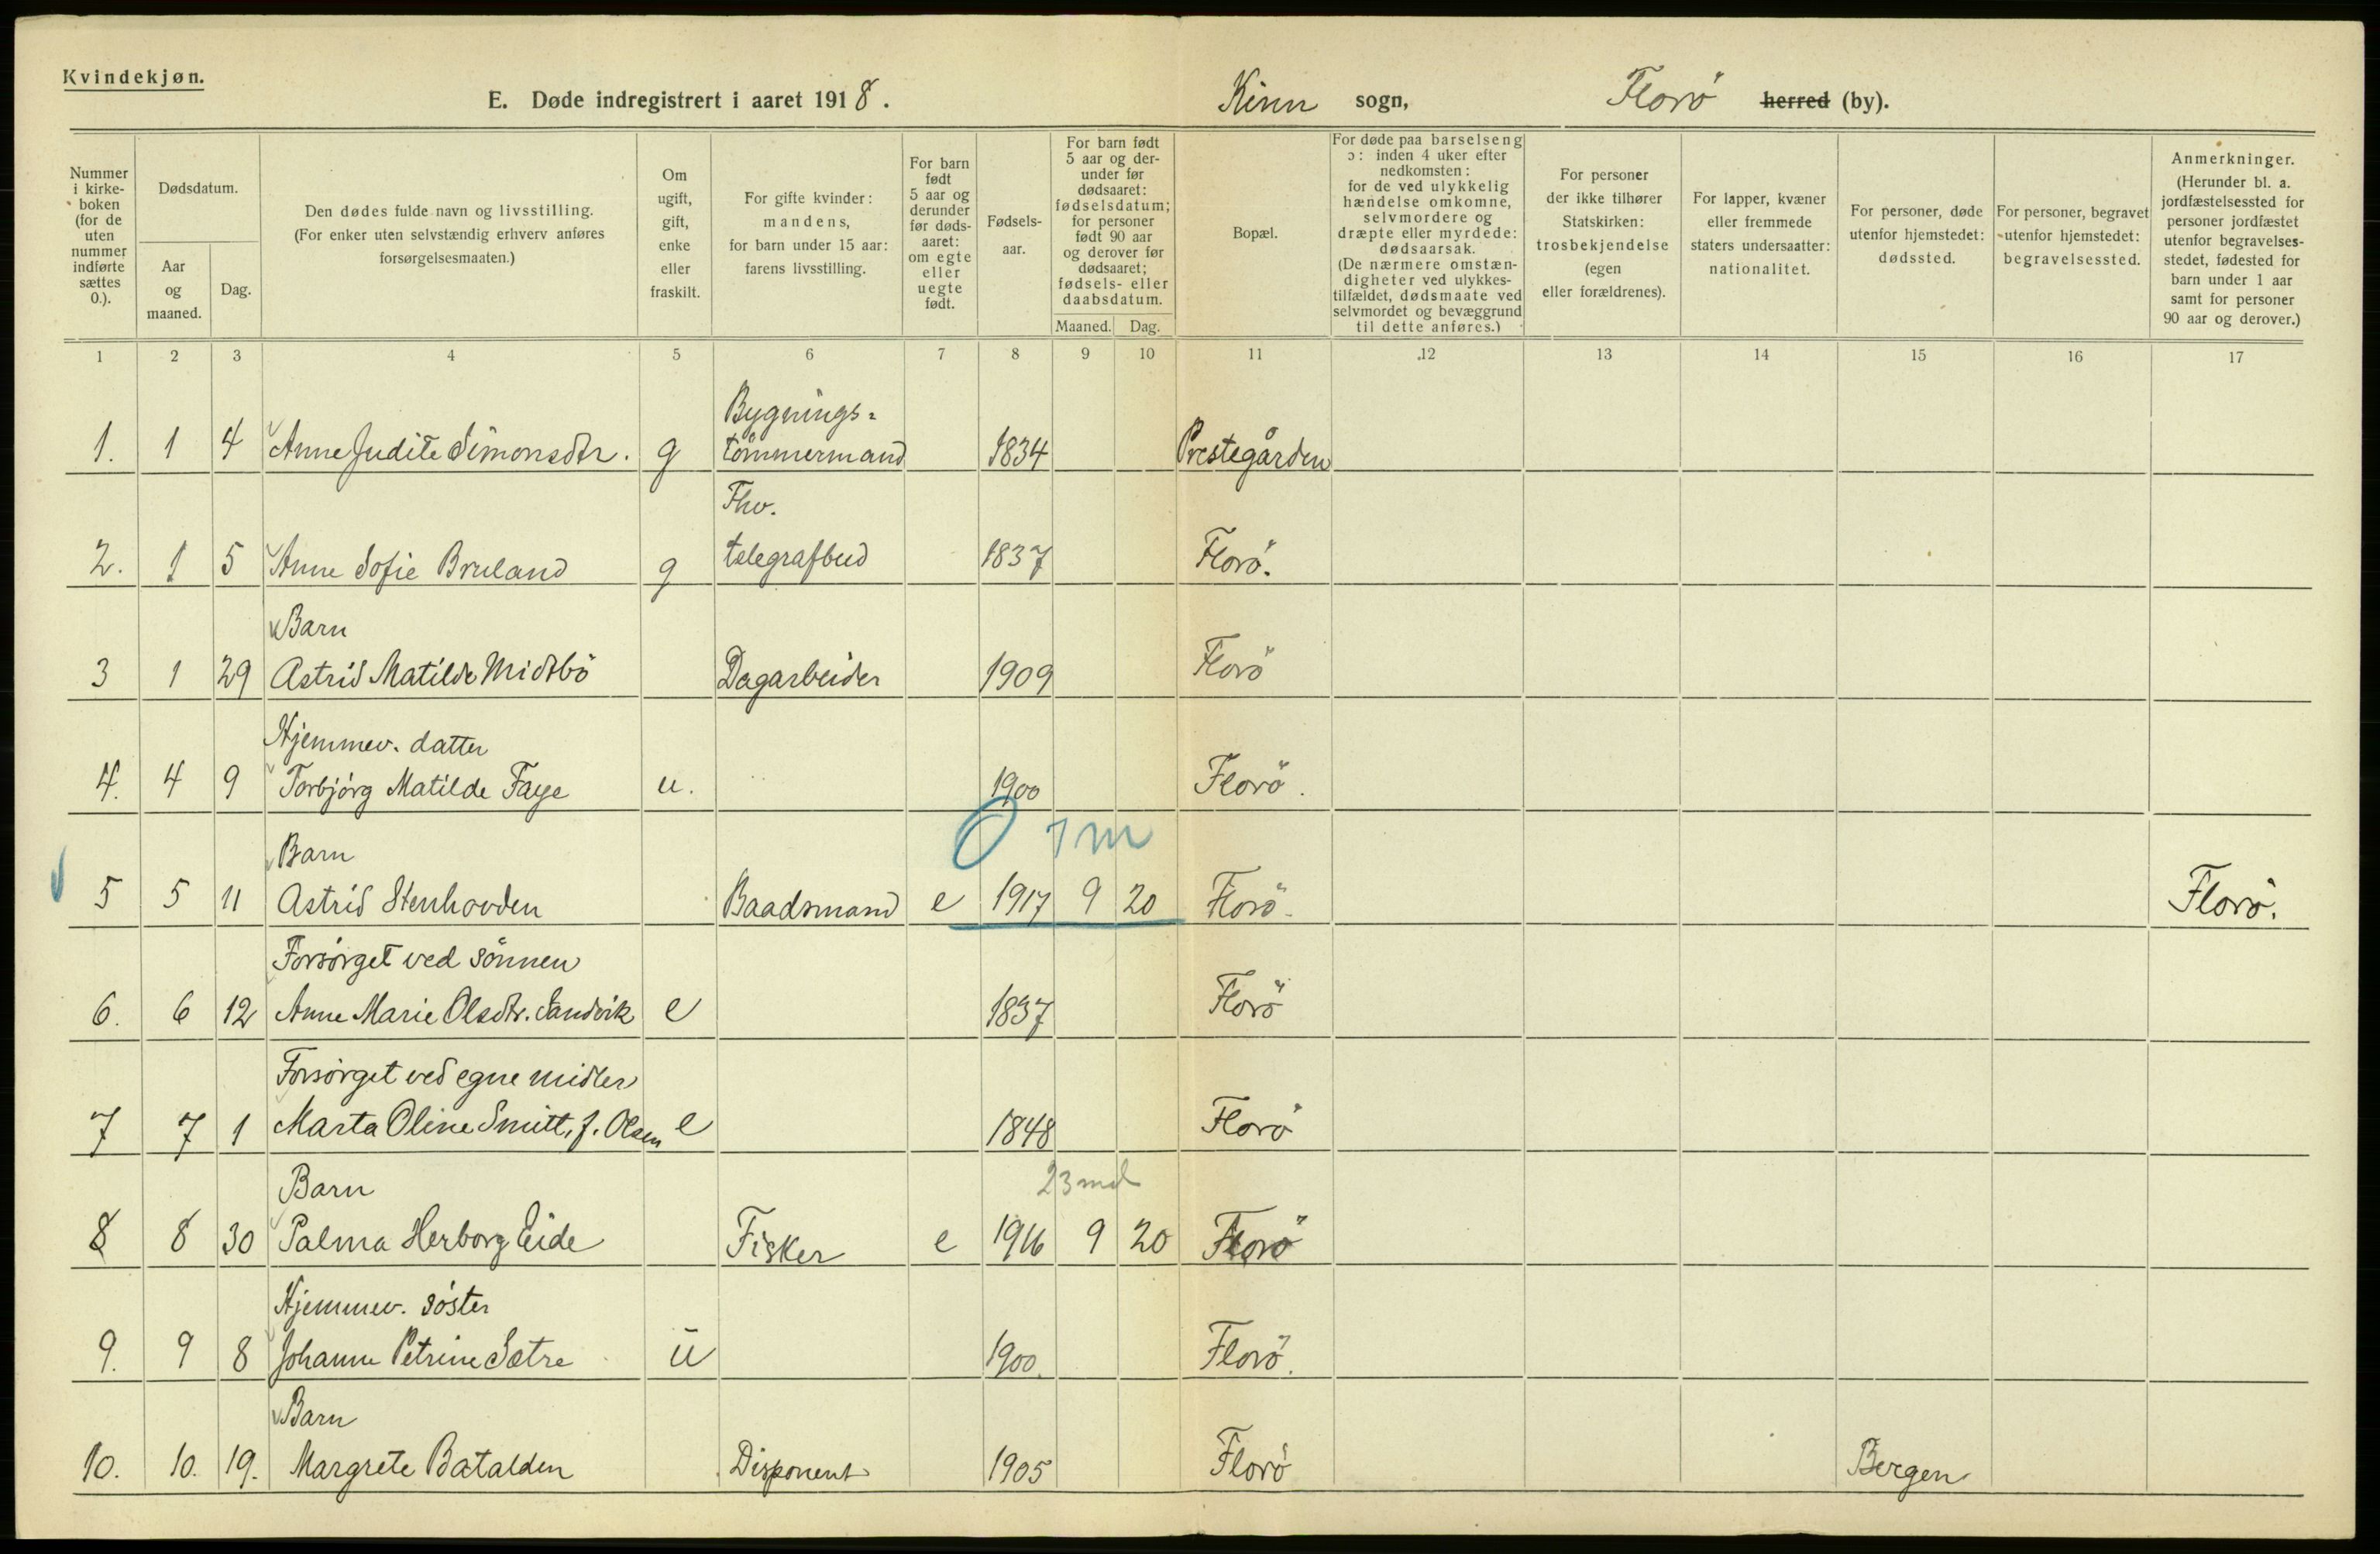 Kvindekjøn.
E. Døde indregistrert i aaret 1918. Kinn sogn, Florö herred (by).
Nummer i kirke- boken (for de uten nummer indførte sættes 0.).
Dødsdatum.
Aar og maaned.
Dag.
Den dødes fulde navn og livsstilling. (For enker uten selvstændig erhverv anføres forsørgelsesmaaten.)
Om ugift, gift, enke eller fraskilt.
For gifte kvinder: mandens, for barn under 15 aar: farens livsstilling.
For barn født 5 aar og derunder før døds- aaret: om egte eller uegte født.
Fødsels- aar.
For barn født 5 aar og der- under før dødsaaret: fødselsdatum; for personer født 90 aar og derover før dødsaaret; fødsels- eller daabsdatum.
Maaned. Dag.
Bopæl.
For døde paa barselseng ɔ: inden 4 uker efter nedkomsten: for de ved ulykkelig hændelse omkomne, selvmordere og dræpte eller myrdede: dødsaarsak. (De nærmere omstæn- digheter ved ulykkes- tilfældet, dødsmaate ved selvmordet og bevæggrund til dette anføres.)
For personer der ikke tilhører Statskirken: trosbekjendelse (egen eller forældrenes).
For lapper, kvæner eller fremmede staters undersaatter: nationalitet.
For personer, døde utenfor hjemstedet: dødssted.
For personer, begravet utenfor hjemstedet: begravelsessted.
Anmerkninger. (Herunder bl. a. jordfæstelsessted for personer jordfæstet utenfor begravelses- stedet, fødested for barn under 1 aar samt for personer 90 aar og derover.)
1 2 3 4 5 6 7 8 9 10 11 12 13 14 15 16 17
Bygnings-
1. 1 4 Anne Judite Simonsdtr. g tömmermand 1834 Prestegården
Fhv.
2. 1 5 Anne Sofie Bruland g telegrafbud 1837 Florö.
Barn
3 1 29 Astrid Matilde Midtbö Dagarbeider 1909 Florö
Hjemmev. datter
4. 4 9 Torbjörg Matilde Faye u. 1900 Florö.
0 7 m
Barn
5 5 11 Astrid Stenhovden Baadsmand e 1917 9 20 Florö. Florö.
Forsörget ved sönnen
6. 6 12 Anne Marie Olsdtr. Sandvik e 1837 Florö
Forsörget ved egne midler
7 7 1 Marta Oline Smitt, f. Olsen e 1848 Florö
23 md
Barn
8 8 30 Palma Herborg Eide Fisker e 1916 9 20 Florö
Hjemmev. söster
9. 9 8 Johanne Petrine Sætre u 1900. Florö.
Barn
10. 10. 19. Margrete Batalden Disponent 1905 Florö Bergen